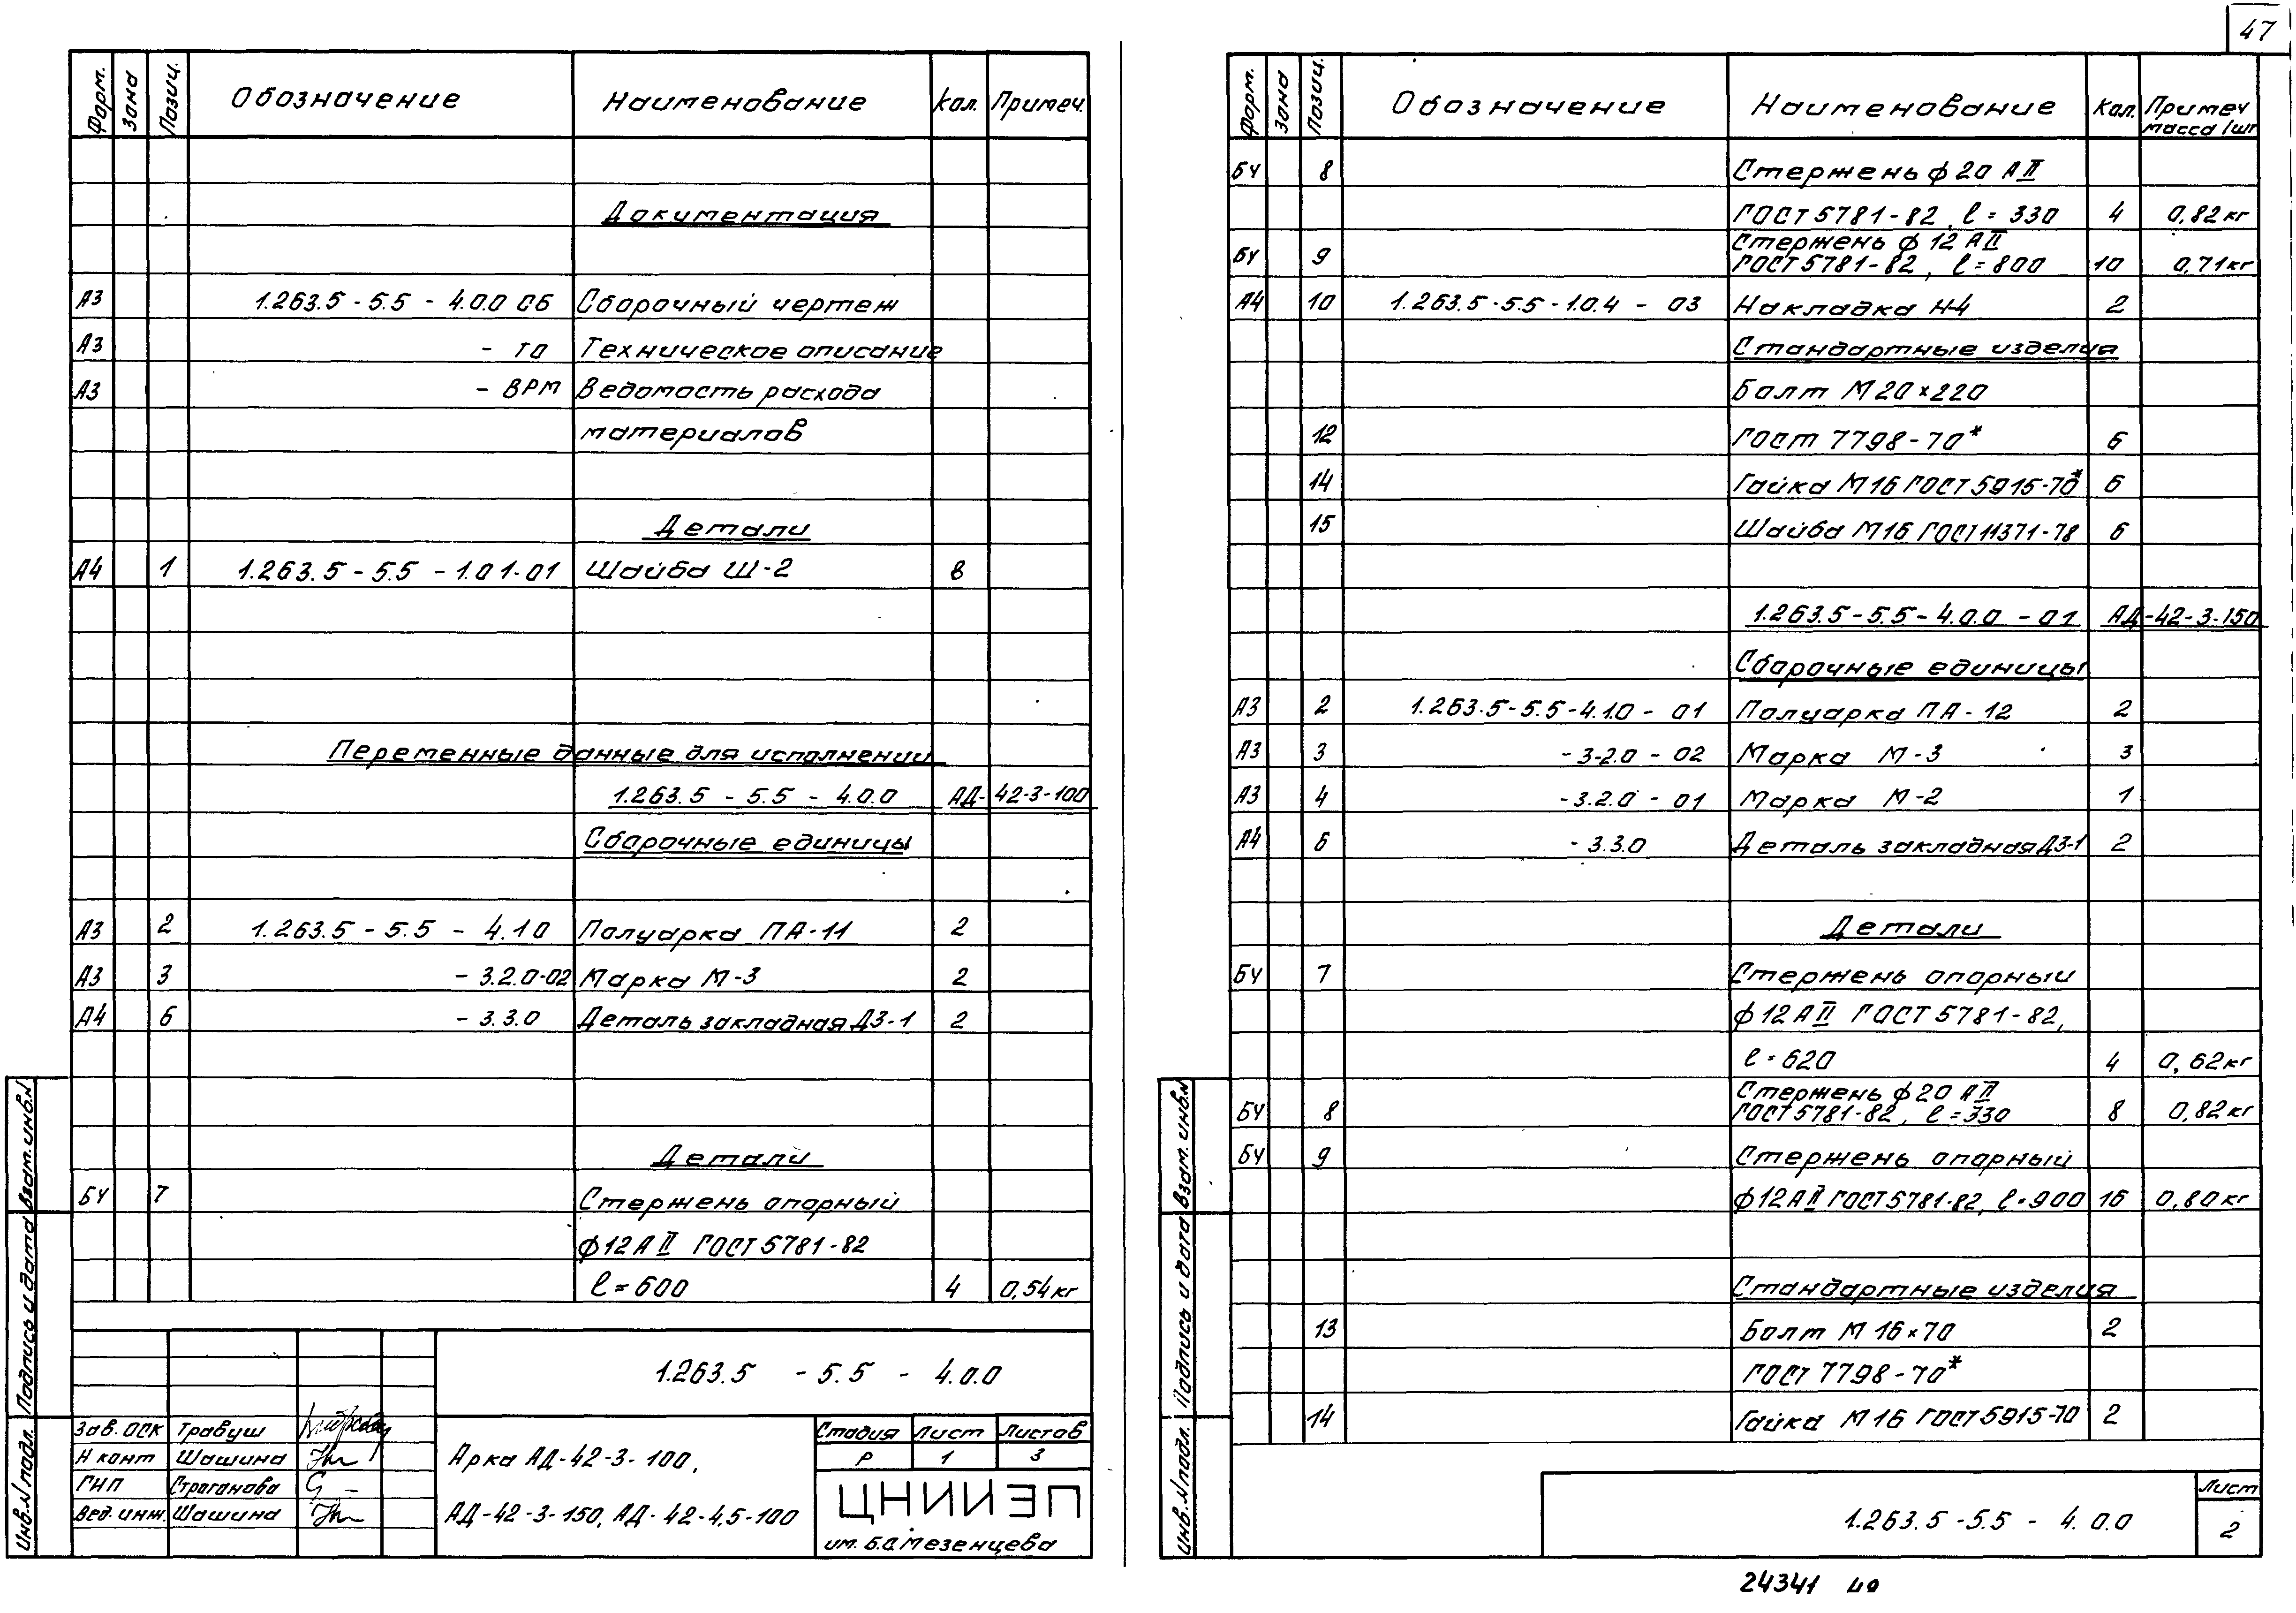 47
Форм. Зона Позиц. Обозначение Наименование Кол. Примеч.
Документация
А3 1.263.5-5.5-4.0.0 СБ Сборочный чертеж
А3 -ТО Техническое описание
А3 -ВРМ Ведомость расхода
материалов
Детали
А4 1 1.263.5-5.5-1.0.1-01 Шайба Ш-2 8
Переменные данные для исполнении
1.263.5-5.5-4.0.0 АД-42-3-100
Сборочные единицы
А3 2 1.263.5-5.5-4.1.0 Полуарка ПА-11 2
А3 3 -3.2.0-02 Марка М-3 2
А4 6 -3.3.0 Деталь закладная ДЗ-1 2
Детали
БЧ 7 Стержень опорный
ф12АII ГОСТ 5781-82
ℓ=600 4 0,54кг
1.263.5 -5.5 - 4.0.0
Зав. ОСК Травуш
Н конт Шашина
ГИП Строганова
Вед. инж. Шашина
Арка АД-42-3-100,
АД-42-3-150, АД-42-4,5-100
Стадия Лист Листов
Р 1 3
ЦНИИЭП
им. Б.С. Мезенцева
Инв.N подл. Подпись и дата Взам. инв.N
Форм. Зона Позиц. Обозначение Наименование Кол. Примеч масса 1шт
БЧ 8 Стержень ф20 АII
ГОСТ 5781-82, ℓ=330 4 0,82кг
Стержень ф 12 АII
БЧ 9 ГОСТ 5781-82, ℓ=800 10 0,71кг
А4 10 1.263.5-5.5-1.0.4-03 Накладка Н-4 2
Стандартные изделия
Болт М20×220
12 ГОСТ 7798-70* 6
14 Гайка М16 ГОСТ 5915-70* 6
15 Шайба М16 ГОСТ 11371-78 6
1.263.5-5.5-4.0.0-01 АД-42-3-150
Сборочные единицы
А3 2 1.263.5-5.5-4.1.0-01 Полуарка ПА-12 2
А3 3 -3-2.0-02 Марка М-3 3
А3 4 -3.2.0-01 Марка М-2 1
А4 6 -3.3.0 Деталь закладная ДЗ-1 2
Детали
БЧ 7 Стержень опорный
ф12АII ГОСТ 5781-82,
ℓ=620 4 0,62кг
Стержень ф20 АII
БЧ 8 ГОСТ 5781-82, ℓ=330 8 0,82кг
БЧ 9 Стержень опорный
ф12АII ГОСТ 5781-82, ℓ=900 16 0,80кг
Стандартные изделия
13 Болт М16×70 2
ГОСТ 7798-70*
14 Гайка М16 ГОСТ 5915-70 2
1.263.5-5.5-4.0.0
Лист
2
Инв.N подл. Подпись и дата Взам. инв.N
24341 49